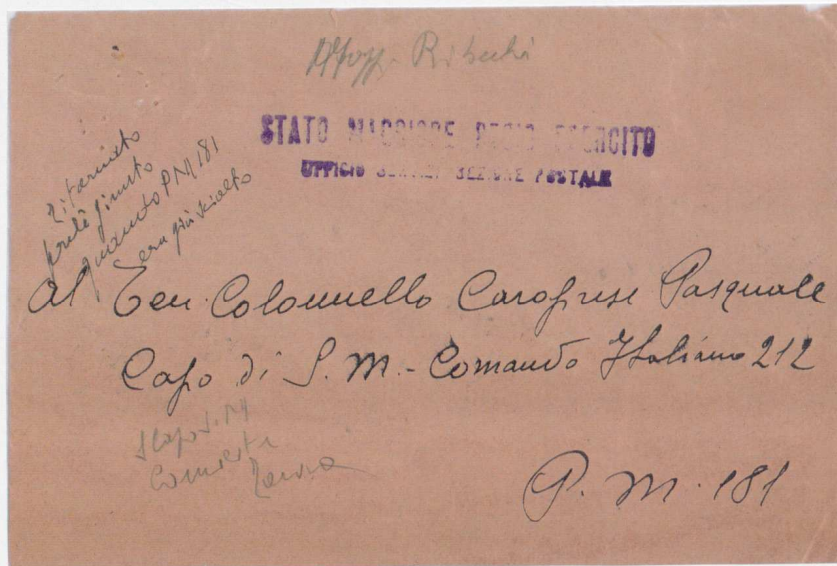 STATO MAGGIORE REGIO ESERCITO
UFFICIO SEZIONE POSTALE
Ritornato
perchè giunto
quando PM 181
era già sciolto
Al Ten. Colonnello Carofrese Pasquale
Capo di S. M. - Comando Italiano 212
P. M. 181